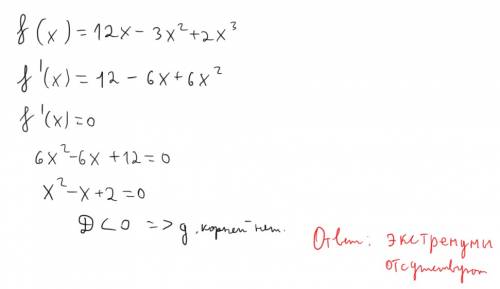 f(x) = 12x - 3x² + 2x³
f'(x) = 12 - 6x + 6x²
f'(x) = 0
6x² - 6x + 12 = 0
x² - x + 2 = 0
D < 0 => д. корней нет.
Ответ: экстремуми
отсутствуют